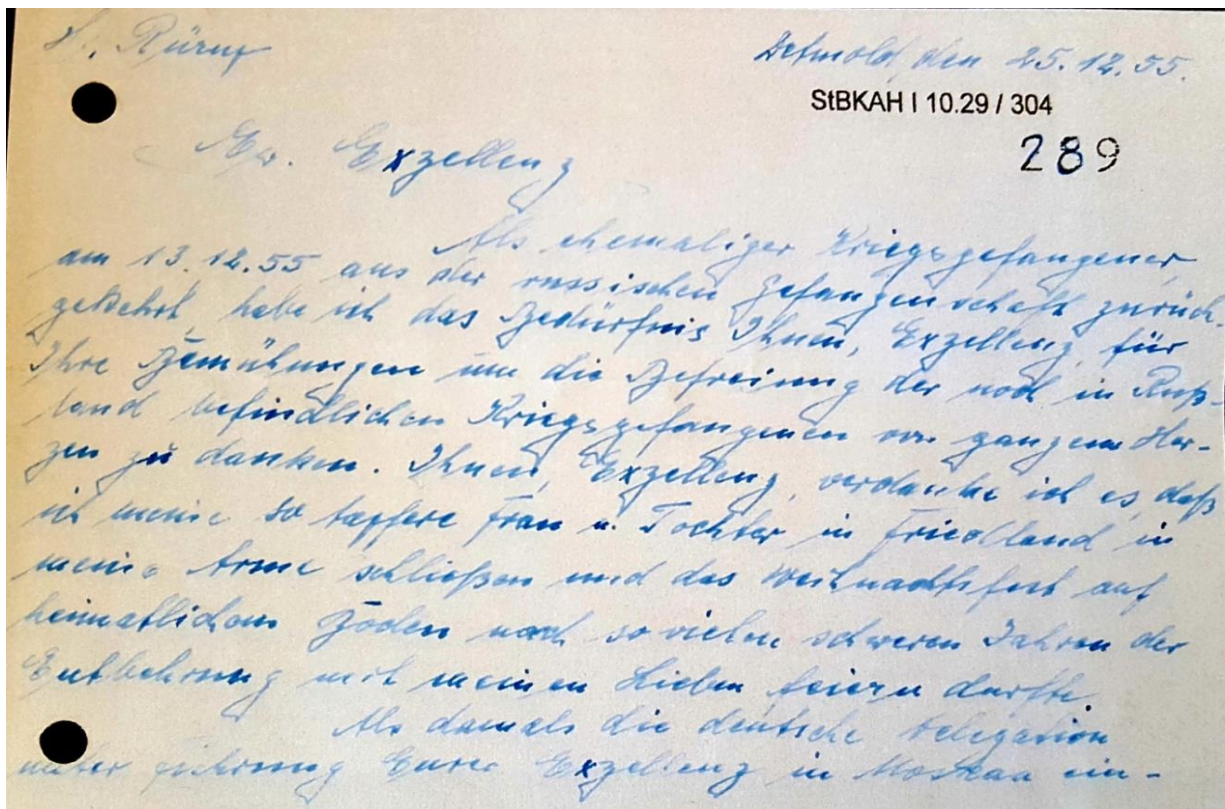 Detmold, den 25.12.55.
StBKAH I 10.29 / 304
289
Ew. Exzellenz
Als ehemaliger Kriegsgefangener,
am 13.12.55 aus der russischen Gefangenschaft zurück-
gekehrt, habe ich das Bedürfnis Ihnen, Exzellenz, für
Ihre Bemühungen um die Befreiung der noch in Ruß-
land befindlichen Kriegsgefangenen von ganzem Her-
zen zu danken. Ihnen, Exzellenz, verdanke ich es, daß
ich meine so tapfere Frau u. Tochter in Friedland in
meine Arme schließen und das Weihnachtsfest auf
heimatlichem Boden nach so vielen schweren Jahren der
Entbehrung mit meinen Lieben feiern durfte.
Als damals die deutsche Delegation
unter Führung Eurer Exzellenz in Moskau ein-